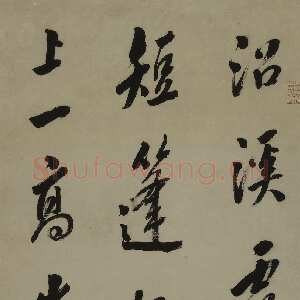 沿溪
短篷
上一高
Shufawang.cn